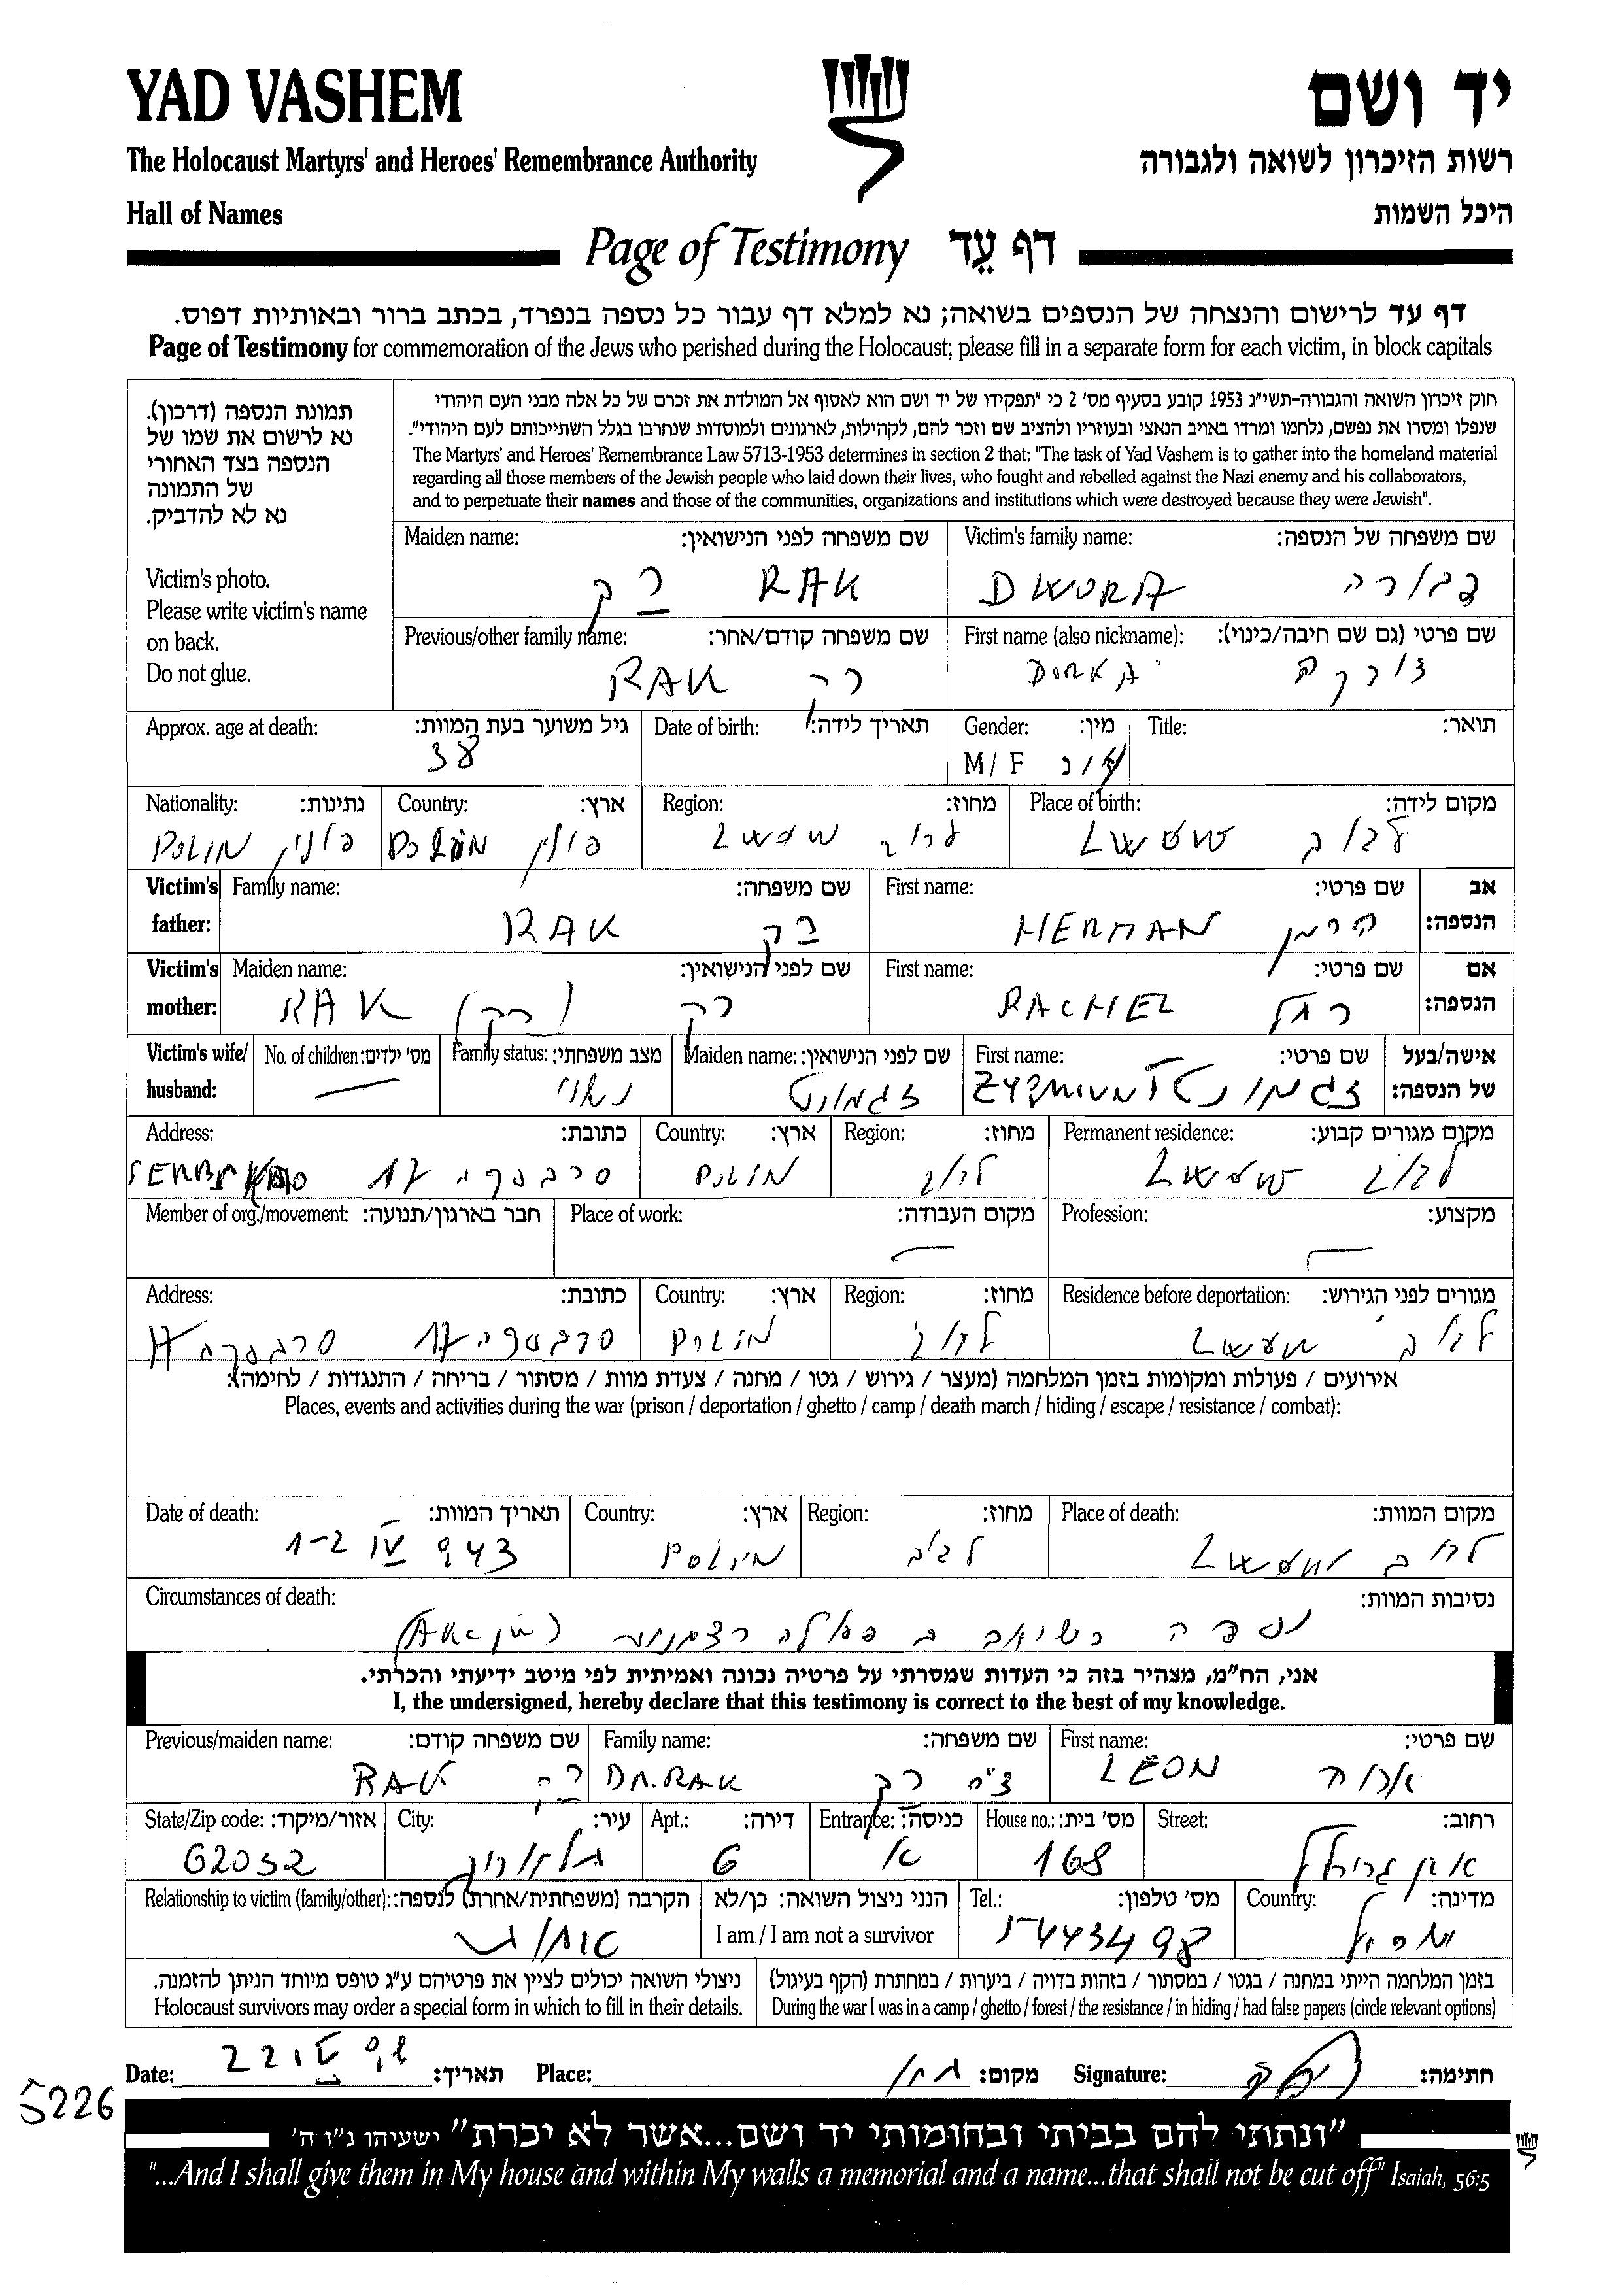 YAD VASHEM
יד ושם
The Holocaust Martyrs' and Heroes' Remembrance Authority
רשות הזיכרון לשואה ולגבורה
Hall of Names
היכל השמות
Page of Testimony דף עֵד
דף עד לרישום והנצחה של הנספים בשואה; נא למלא דף עבור כל נספה בנפרד, בכתב ברור ובאותיות דפוס.
Page of Testimony for commemoration of the Jews who perished during the Holocaust; please fill in a separate form for each victim, in block capitals
תמונת הנספה (דרכון).
נא לרשום את שמו של
הנספה בצד האחורי
של התמונה
נא לא להדביק.
Victim's photo.
Please write victim's name
on back.
Do not glue.
חוק זיכרון השואה והגבורה-תשי״ג 1953 קובע בסעיף מס׳ 2 כי ״תפקידו של יד ושם הוא לאסוף אל המולדת את זכרם של כל אלה מבני העם היהודי
שנפלו ומסרו את נפשם, נלחמו ומרדו באויב הנאצי ובעוזריו ולהציב שם וזכר להם, לקהילות, לארגונים ולמוסדות שנחרבו בגלל השתייכותם לעם היהודי״.
The Martyrs' and Heroes' Remembrance Law 5713-1953 determines in section 2 that: "The task of Yad Vashem is to gather into the homeland material
regarding all those members of the Jewish people who laid down their lives, who fought and rebelled against the Nazi enemy and his collaborators,
and to perpetuate their names and those of the communities, organizations and institutions which were destroyed because they were Jewish".
Maiden name: שם משפחה לפני הנישואין: Victim's family name: שם משפחה של הנספה:
רק RAK DWORA דבורה
Previous/other family name: שם משפחה קודם/אחר: First name (also nickname): שם פרטי (גם שם חיבה/כינוי):
RAK רק DORKA דורקה
Approx. age at death: גיל משוער בעת המוות: Date of birth: תאריך לידה: Gender: מין: Title: תואר:
38 M/F ז/נ
Nationality: נתינות: Country: ארץ: Region: מחוז: Place of birth: מקום לידה:
POLIN פולין פולין LWOW לבוב LWOW לבוב
Victim's father: Family name: שם משפחה: First name: שם פרטי: אב הנספה:
RAK רק HERMAN הרמן
Victim's mother: Maiden name: שם לפני הנישואין: First name: שם פרטי: אם הנספה:
RAK (רק) רק RACHEL רחל
Victim's wife/husband: No. of children: מס׳ ילדים: Family status: מצב משפחתי: Maiden name: שם לפני הנישואין: First name: שם פרטי: אישה/בעל של הנספה:
— נשוי זגמונט ZYGMUNT זגמונט
Address: כתובת: Country: ארץ: Region: מחוז: Permanent residence: מקום מגורים קבוע:
סרבסקה 17 POLIN לבוב LWOW לבוב
Member of org./movement: חבר בארגון/תנועה: Place of work: מקום העבודה: Profession: מקצוע:
— —
Address: כתובת: Country: ארץ: Region: מחוז: Residence before deportation: מגורים לפני הגירוש:
סרבסקה 17 סרבסקה 17 POLIN לבוב LWOW לבוב
אירועים / פעולות ומקומות בזמן המלחמה (מעצר / גירוש / גטו / מחנה / צעדת מוות / מסתור / בריחה / התנגדות / לחימה):
Places, events and activities during the war (prison / deportation / ghetto / camp / death march / hiding / escape / resistance / combat):
Date of death: תאריך המוות: Country: ארץ: Region: מחוז: Place of death: מקום המוות:
1-2 IV 943 POLIN לבוב LWOW לבוב
Circumstances of death: נסיבות המוות:
נספה בשואה
אני, הח״מ, מצהיר בזה כי העדות שמסרתי על פרטיה נכונה ואמיתית לפי מיטב ידיעתי והכרתי.
I, the undersigned, hereby declare that this testimony is correct to the best of my knowledge.
Previous/maiden name: שם משפחה קודם: Family name: שם משפחה: First name: שם פרטי:
RAK רק DR. RAK רק LEON אריה
State/Zip code: אזור/מיקוד: City: עיר: Apt.: דירה: Entrance: כניסה: House no.: מס׳ בית: Street: רחוב:
62032 6 א 168 אבן גבירול
Relationship to victim (family/other): הקרבה (משפחתית/אחרת) לנספה: הנני ניצול השואה: כן/לא Tel.: מס׳ טלפון: Country: מדינה:
I am / I am not a survivor 5443498 ישראל
ניצולי השואה יכולים לציין את פרטיהם ע״ג טופס מיוחד הניתן להזמנה. בזמן המלחמה הייתי במחנה / בגטו / במסתור / בזהות בדויה / ביערות / במחתרת (הקף בעיגול)
Holocaust survivors may order a special form in which to fill in their details. During the war I was in a camp / ghetto / forest / the resistance / in hiding / had false papers (circle relevant options)
Date: תאריך: Place: מקום: Signature: חתימה:
5226
״ונתתי להם בביתי ובחומותי יד ושם...אשר לא יכרת״ ישעיהו נ״ו ה׳
"...And I shall give them in My house and within My walls a memorial and a name...that shall not be cut off" Isaiah, 56:5